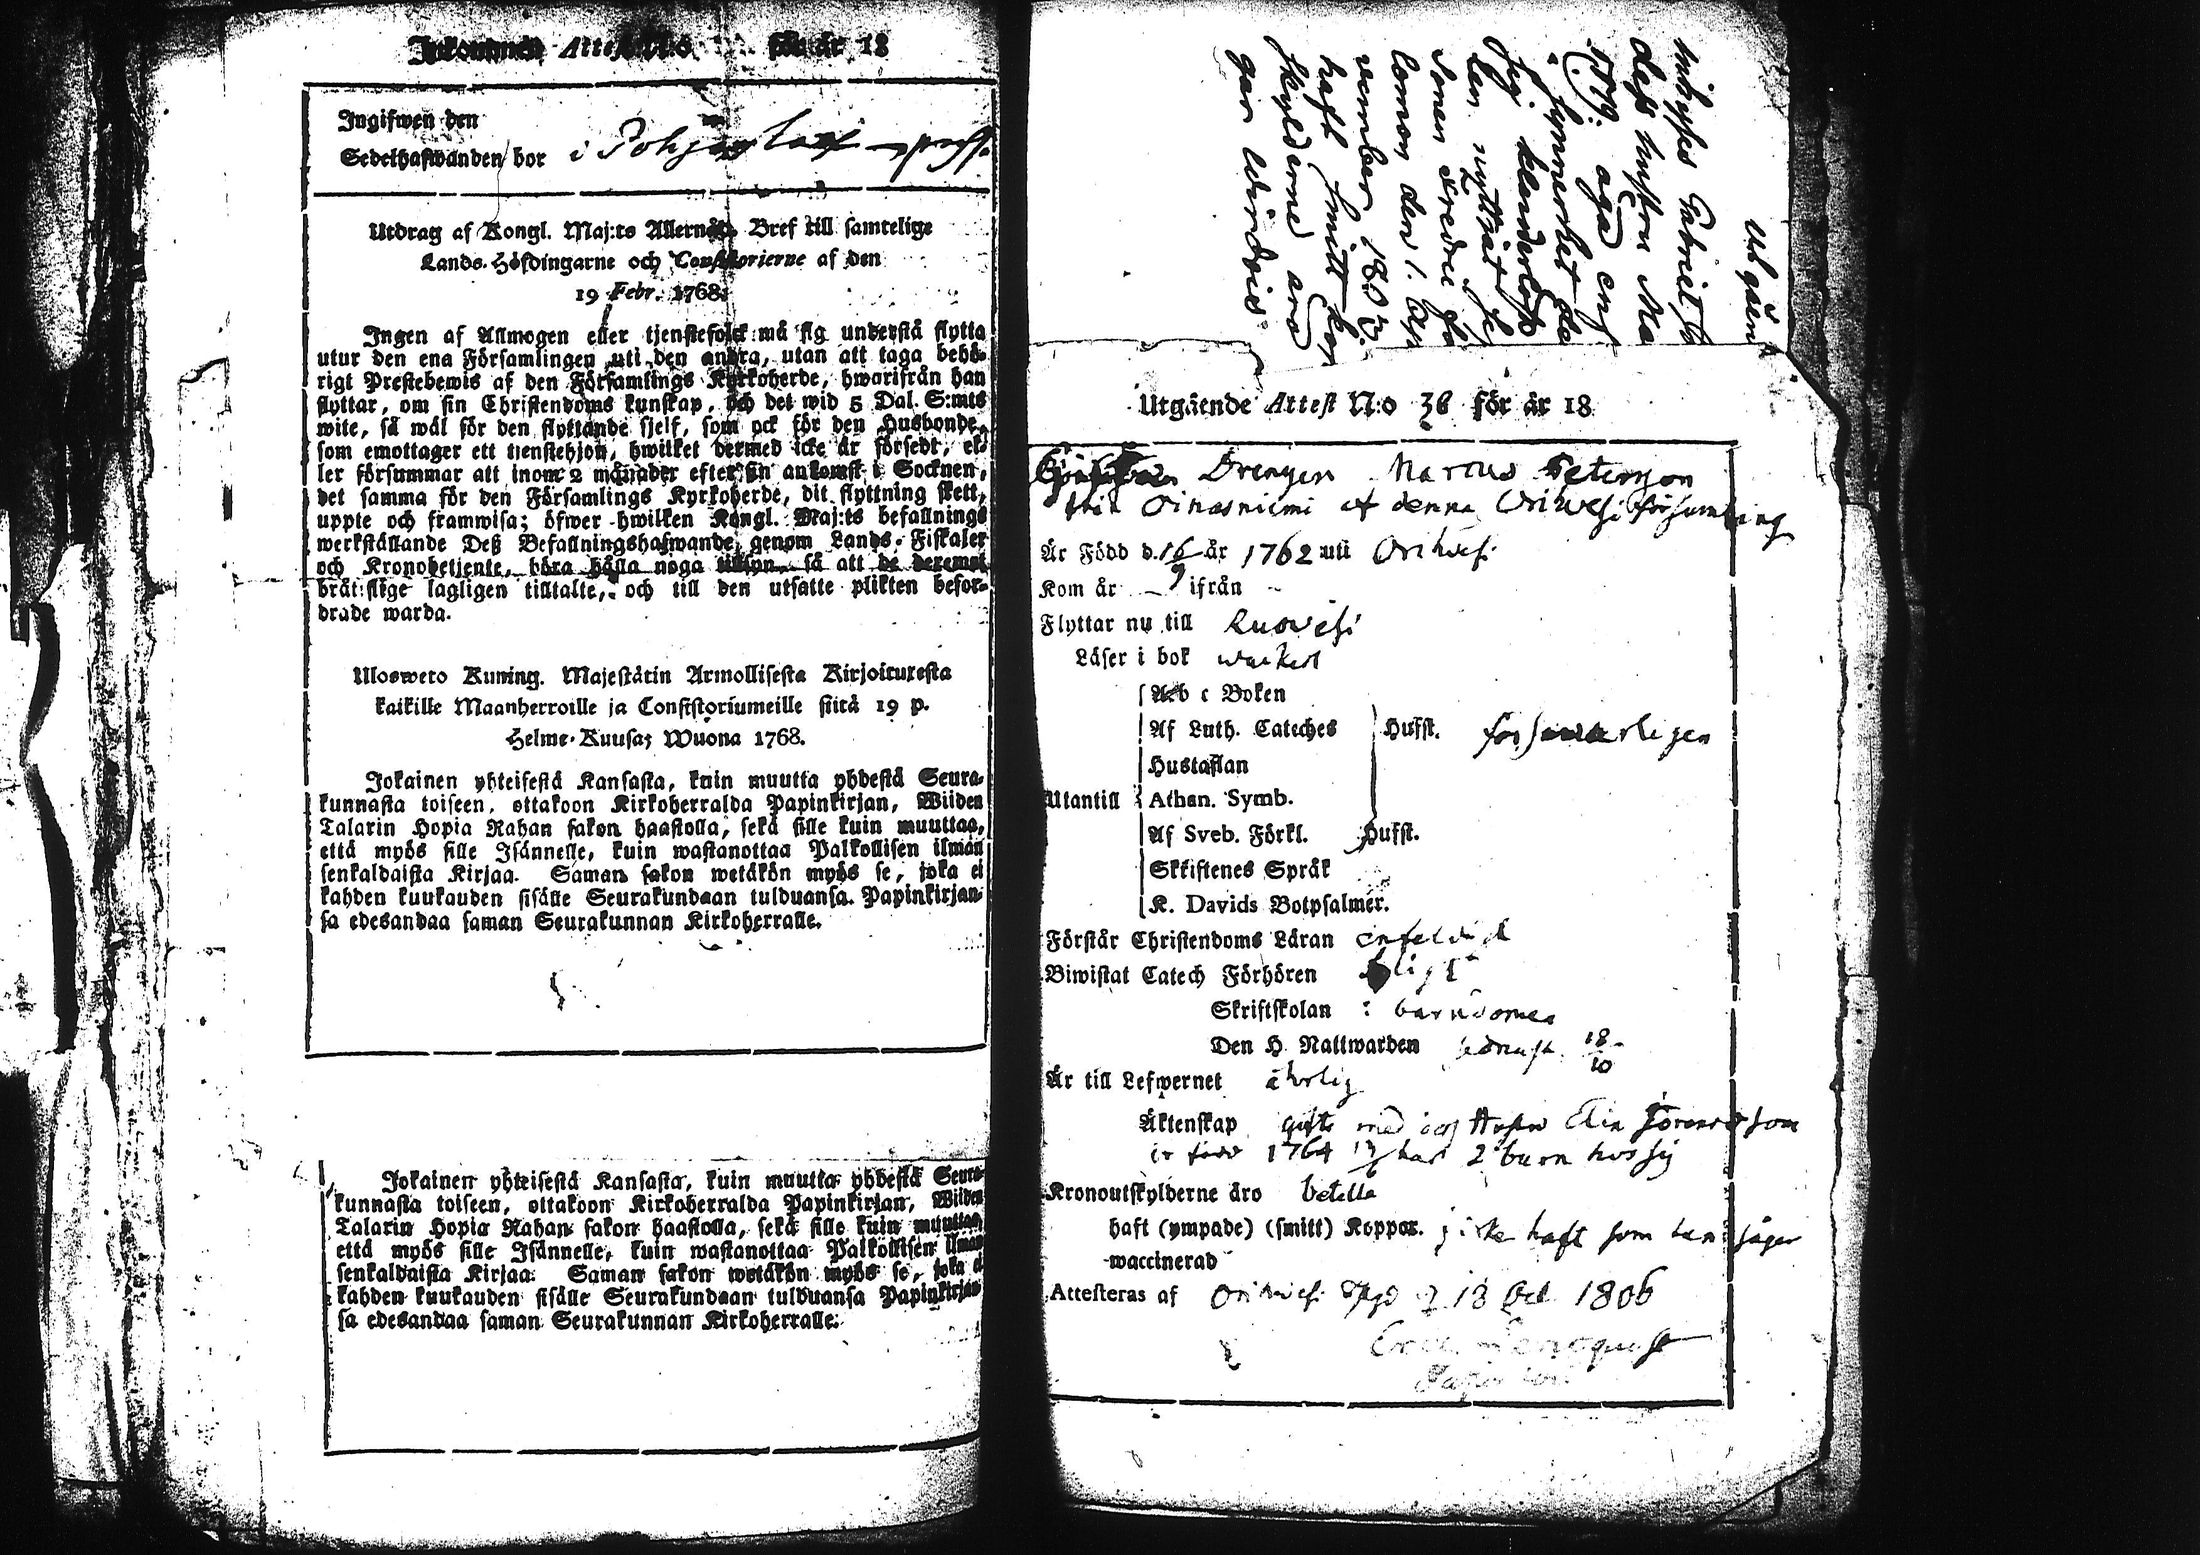 Inkommen Attest N:o för år 18
Ingifwen den
Sedelhafwanden bor i Pohjaslax
Utdrag af Kongl. Maj:ts Allernåd. Bref till samtelige
Lands-Höfdingarne och Consistorierne af den
19 Febr. 1768.
Ingen af Allmogen eller tjenstefolck må sig understå flytta
utur den ena Församlingen uti den andra, utan att taga behö-
rigt Prestebewis af den Församlings Kyrkoherde, hwarifrån han
flyttar, om sin Christendoms kunskap, och det wid 5 Dal. S:mts
wite, så wäl för den flyttande sjelf, som ock för den Husbonde,
som emottager ett tjenstehjon, hwilket dermed icke är försedt, el-
ler försummar att inom 2 månader efter sin ankomst i Socknen,
det samma för den Församlings Kyrkoherde, dit flyttning skett,
uppte och framwisa; öfwer hwilken Kongl. Maj:ts befallnings
werkställande Deß Befallningshafwande genom Lands-Fiskaler
och Kronobetjente, böra hålla noga tillsyn, så att de deremot
brätslige lagligen tilltalte, och till den utsatte plikten befor-
drade warda.
Ulosweto Kuning. Majestätin Armollisesta Kirjoituxesta
kaikille Maanherroille ja Consistoriumeille siitä 19 p.
Helme-Kuusa; Wuona 1768.
Jokainen yhteisestä Kansasta, kuin muutta yhdestä Seura-
kunnasta toiseen, ottakoon Kirkoherralda Papinkirjan, Wiiden
Talarin Hopia Rahan sakon haastolla, sekä sille kuin muuttaa,
että myös sille Isännelle, kuin wastanottaa Palkollisen ilman
senkaldaista Kirjaa. Saman sakon wetäkön myös se, joka ei
kahden kuukauden sisälle Seurakundaan tulduansa. Papinkirjan-
sa edesandaa saman Seurakunnan Kirkoherralle.
Jokainen yhteisestä Kansasta, kuin muutta yhdestä Seura-
kunnasta toiseen, ottakoon Kirkoherralda Papinkirjan, Wiiden
Talarin Hopia Rahan sakon haastolla, sekä sille kuin muuttaa
että myös sille Isännelle, kuin wastanottaa Palkollisen ilman
senkaldaista Kirjaa. Saman sakon wetäkön myös se, joka ei
kahden kuukauden sisälle Seurakundaan tulduansa Papinkirjan
sa edesandaa saman Seurakunnan Kirkoherralle.
Utgåent
Gabriel
deß hustru Ma
äga
synnerhet
sig
nyttjat
den 1.
vember 1803.
haft smitt kop
skylderne äro
Utgående Attest N:o 36 för år 18
Drengen Marcus Petersson
från Oinasniemi af denna Orihvesi församling
Är Född d. 16/9 år 1762 uti Orihvesi
Kom år — ifrån
Flyttar nu till Ruovesi
Läser i bok wackert
A b c Boken
Af Luth. Cateches Hufst. försvarligen
Hustaflan
Utantill Athan. Symb.
Af Sveb. Förkl. Hufst.
Skriftenes Språk
K. Davids Botpsalmer.
Förstår Christendoms Läran enfeldigt
Biwistat Catech Förhören flijt
Skriftskolan i barndomen
Den H. Nattwarden sednast 18/10
Är till Lefwernet ährlig
Äktenskap gift med Hustru Elin
är född 1764 har 2 barn hos sig
Kronoutskylderne äro betelte
haft (ympade) (smitt) Koppor. icke haft som han säger
waccinerad
Attesteras af Orihvesi d 18 Oct 1806